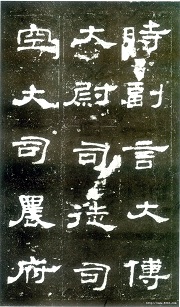 時副言大傅
大尉司徒司
空大司農府